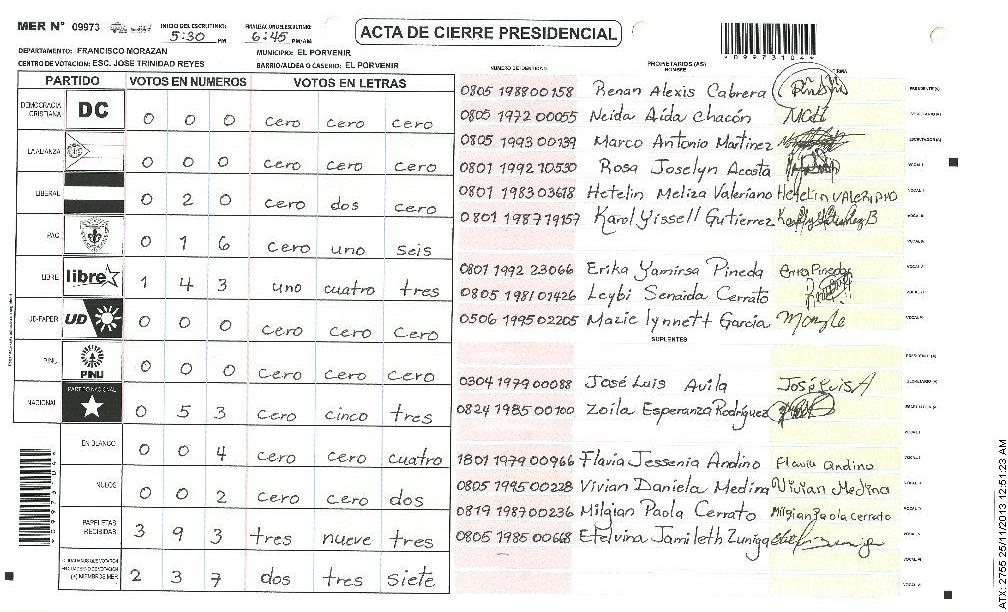 MER Nº 09973 INICIO DEL ESCRUTINIO: 5:30 PM FINALIZACION DEL ESCRUTINIO: 6:45 PM/AM ACTA DE CIERRE PRESIDENCIAL
DEPARTAMENTO: FRANCISCO MORAZAN MUNICIPIO: EL PORVENIR
CENTRO DE VOTACION: ESC. JOSE TRINIDAD REYES BARRIO/ALDEA O CASERIO: EL PORVENIR
PARTIDO VOTOS EN NUMEROS VOTOS EN LETRAS
DEMOCRACIA CRISTIANA DC 0 0 0 cero cero cero
LA ALIANZA 0 0 0 cero cero cero
LIBERAL 0 2 0 cero dos cero
PAC 0 1 6 cero uno seis
LIBRE libre 1 4 3 uno cuatro tres
UD-FAPER UD 0 0 0 cero cero cero
PINU PINU 0 0 0 cero cero cero
NACIONAL PARTIDO NACIONAL 0 5 3 cero cinco tres
EN BLANCO 0 0 4 cero cero cuatro
NULOS 0 0 2 cero cero dos
PAPELETAS RECIBIDAS 3 9 3 tres nueve tres
(+) MIEMBROS MER 2 3 7 dos tres siete
NUMERO DE IDENTIDAD PROPIETARIOS (AS) NOMBRE FIRMA
0805 1988 00158 Renan Alexis Cabrera PRESIDENTE (A)
0805 1972 00055 Neida Aída Chacón SECRETARIO (A)
0805 1993 00139 Marco Antonio Martinez ESCRUTADOR (A)
0801 1992 10530 Rosa Joselyn Acosta VOCAL I
0801 1983 03618 Hetelin Meliza Valeriano Hetelin VALERIANO VOCAL II
0801 1987 19157 Karol Yissell Gutierrez VOCAL III
0801 1992 23066 Erika Yamirsa Pineda Erika Pineda
0805 1981 01426 Leybi Senaida Cerrato
0506 1995 02205 Mazie lynnett Garcia
SUPLENTES
PRESIDENTE (A)
0304 1979 00088 José Luis Avila José Luis A SECRETARIO (A)
0824 1985 00100 Zoila Esperanza Rodríguez ESCRUTADOR (A)
1801 1979 00966 Flavia Jessenia Andino Flavia Andino
0805 1995 00228 Vivian Daniela Medina Vivian Medina
0819 1987 00236 Milgian Paola Cerrato Milgian Paola cerrato
0805 1985 00668 Etelvina Jamileth Zuniga
*09973104*
*09973104*
ATX: 2755 25/11/2013 12:51:23 AM